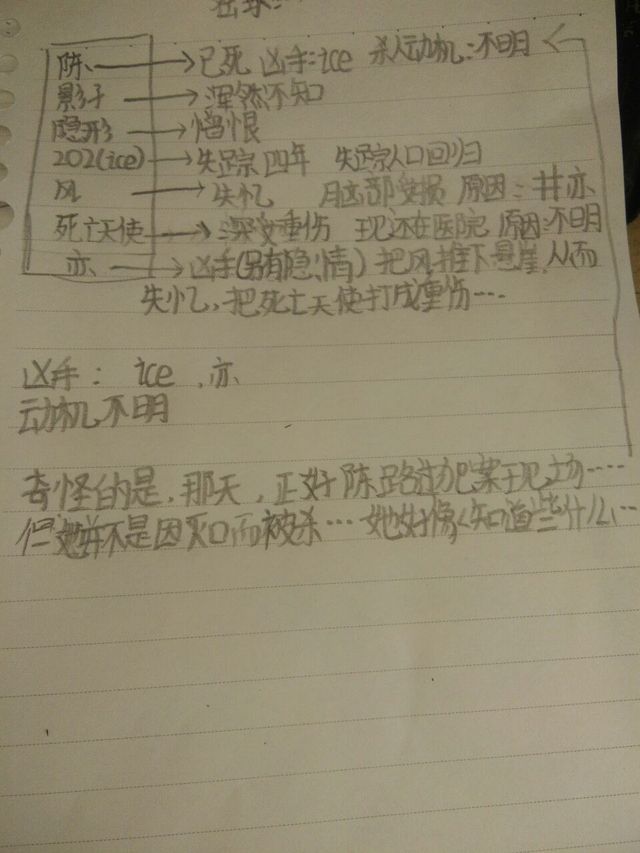 陈 → 已死 凶手:ice 杀人动机:不明
影子 → 浑然不知
隐形 → 憎恨
202(ice) → 失踪四年 失踪人口回归
风 → 失忆 脑部受损 原因: 亦
死亡天使 → 深受重伤 现还在医院 原因:不明
亦 → 凶手(另有隐情) 把风推下悬崖,从而
失忆,把死亡天使打成重伤…
凶手: ice ,亦
动机不明
奇怪的是,那天,正好陈路过犯案现场……
但她并不是因灭口而被杀…她好像知道些什么…